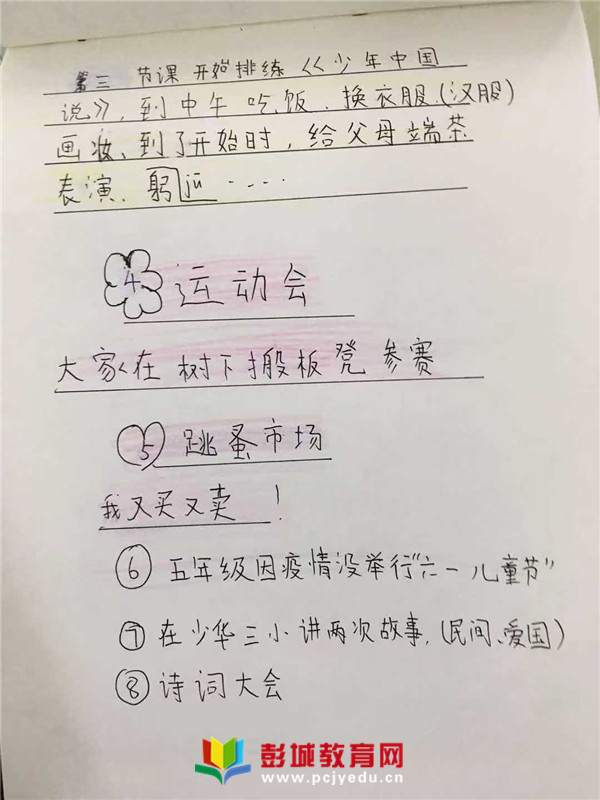 第三节课开始排练《少年中国
说》,到中午吃饭.换衣服.(汉服)
画妆、到了开始时,给父母端茶
表演、躬jū ....
4 运动会
大家在树下搬板凳参赛
5 跳蚤市场
我又买又卖!
⑥ 五年级因疫情没举行“六一儿童节”
⑦ 在少华三小讲两次故事.(民间、爱国)
⑧ 诗词大会
彭城教育网
www.pcjyedu.cn